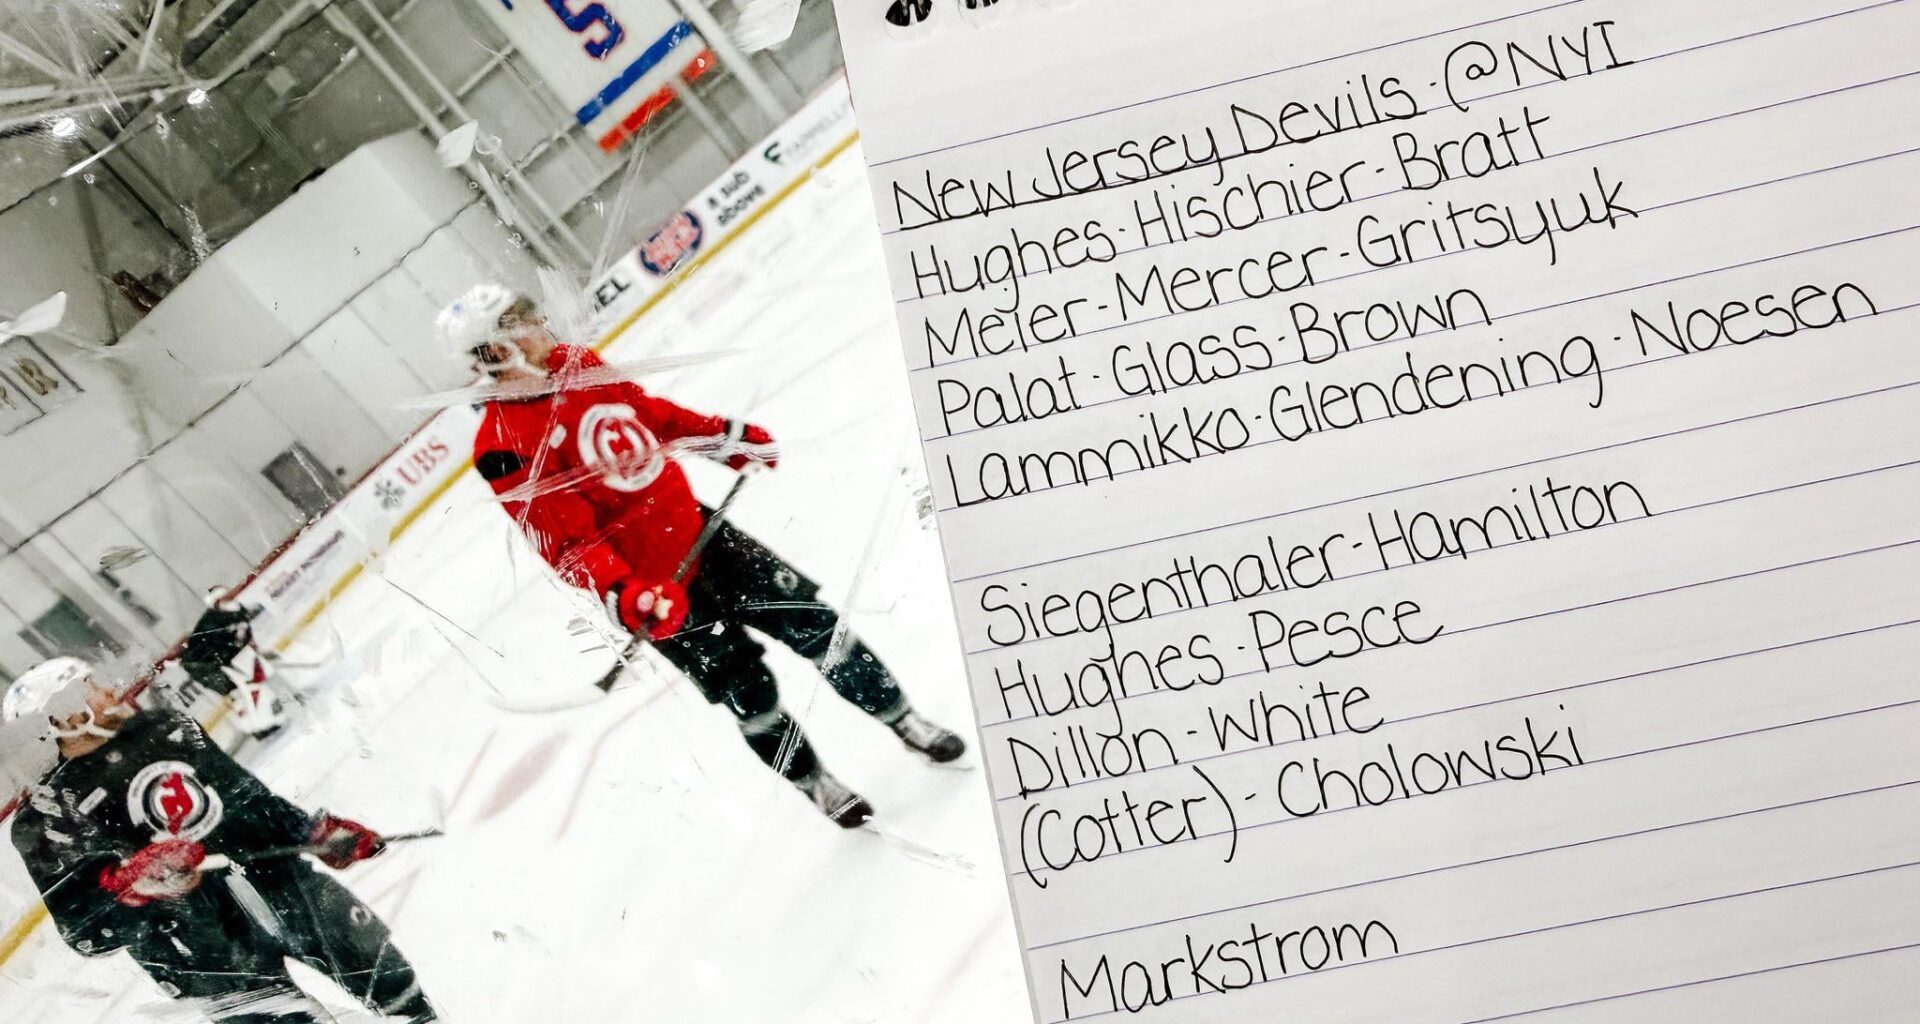 New Jersey Devils · @NYI
Hughes · Hischier · Bratt
Meier · Mercer · Gritsyuk
Palat · Glass · Brown
Lammikko · Glendening · Noesen
Siegenthaler - Hamilton
Hughes · Pesce
Dillon - White
(Cotter) - Cholowski
Markstrom
UBS
a sub
above